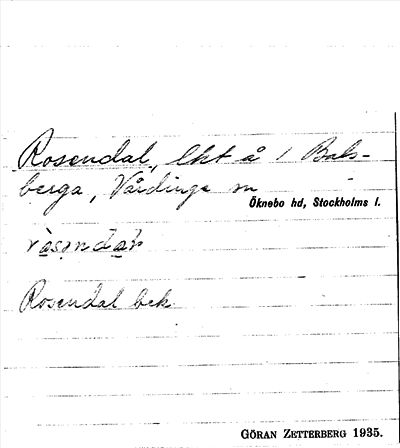 Rosendal, lht å 1 Bals-
berga, Vårdinge sn
Öknebo hd, Stockholms l.
Rosendal bek
GÖRAN ZETTERBERG 1935.